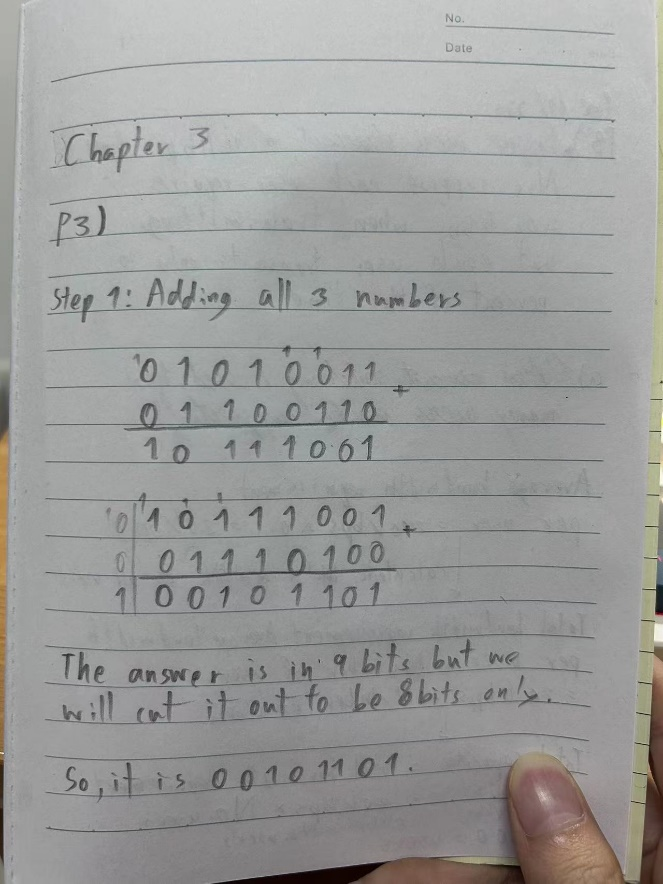 No.
Date
Chapter 3
P3)
Step 1: Adding all 3 numbers
1 1
1 0 1 0 1 0 0 1 1 +
0 1 1 0 0 1 1 0
1 0 1 1 1 0 0 1
1 1 1
1 0 1 0 1 1 1 0 0 1 +
0 0 1 1 1 0 1 0 0
1 0 0 1 0 1 1 0 1
The answer is in 9 bits but we
will cut it out to be 8bits only.
So, it is 00101101.